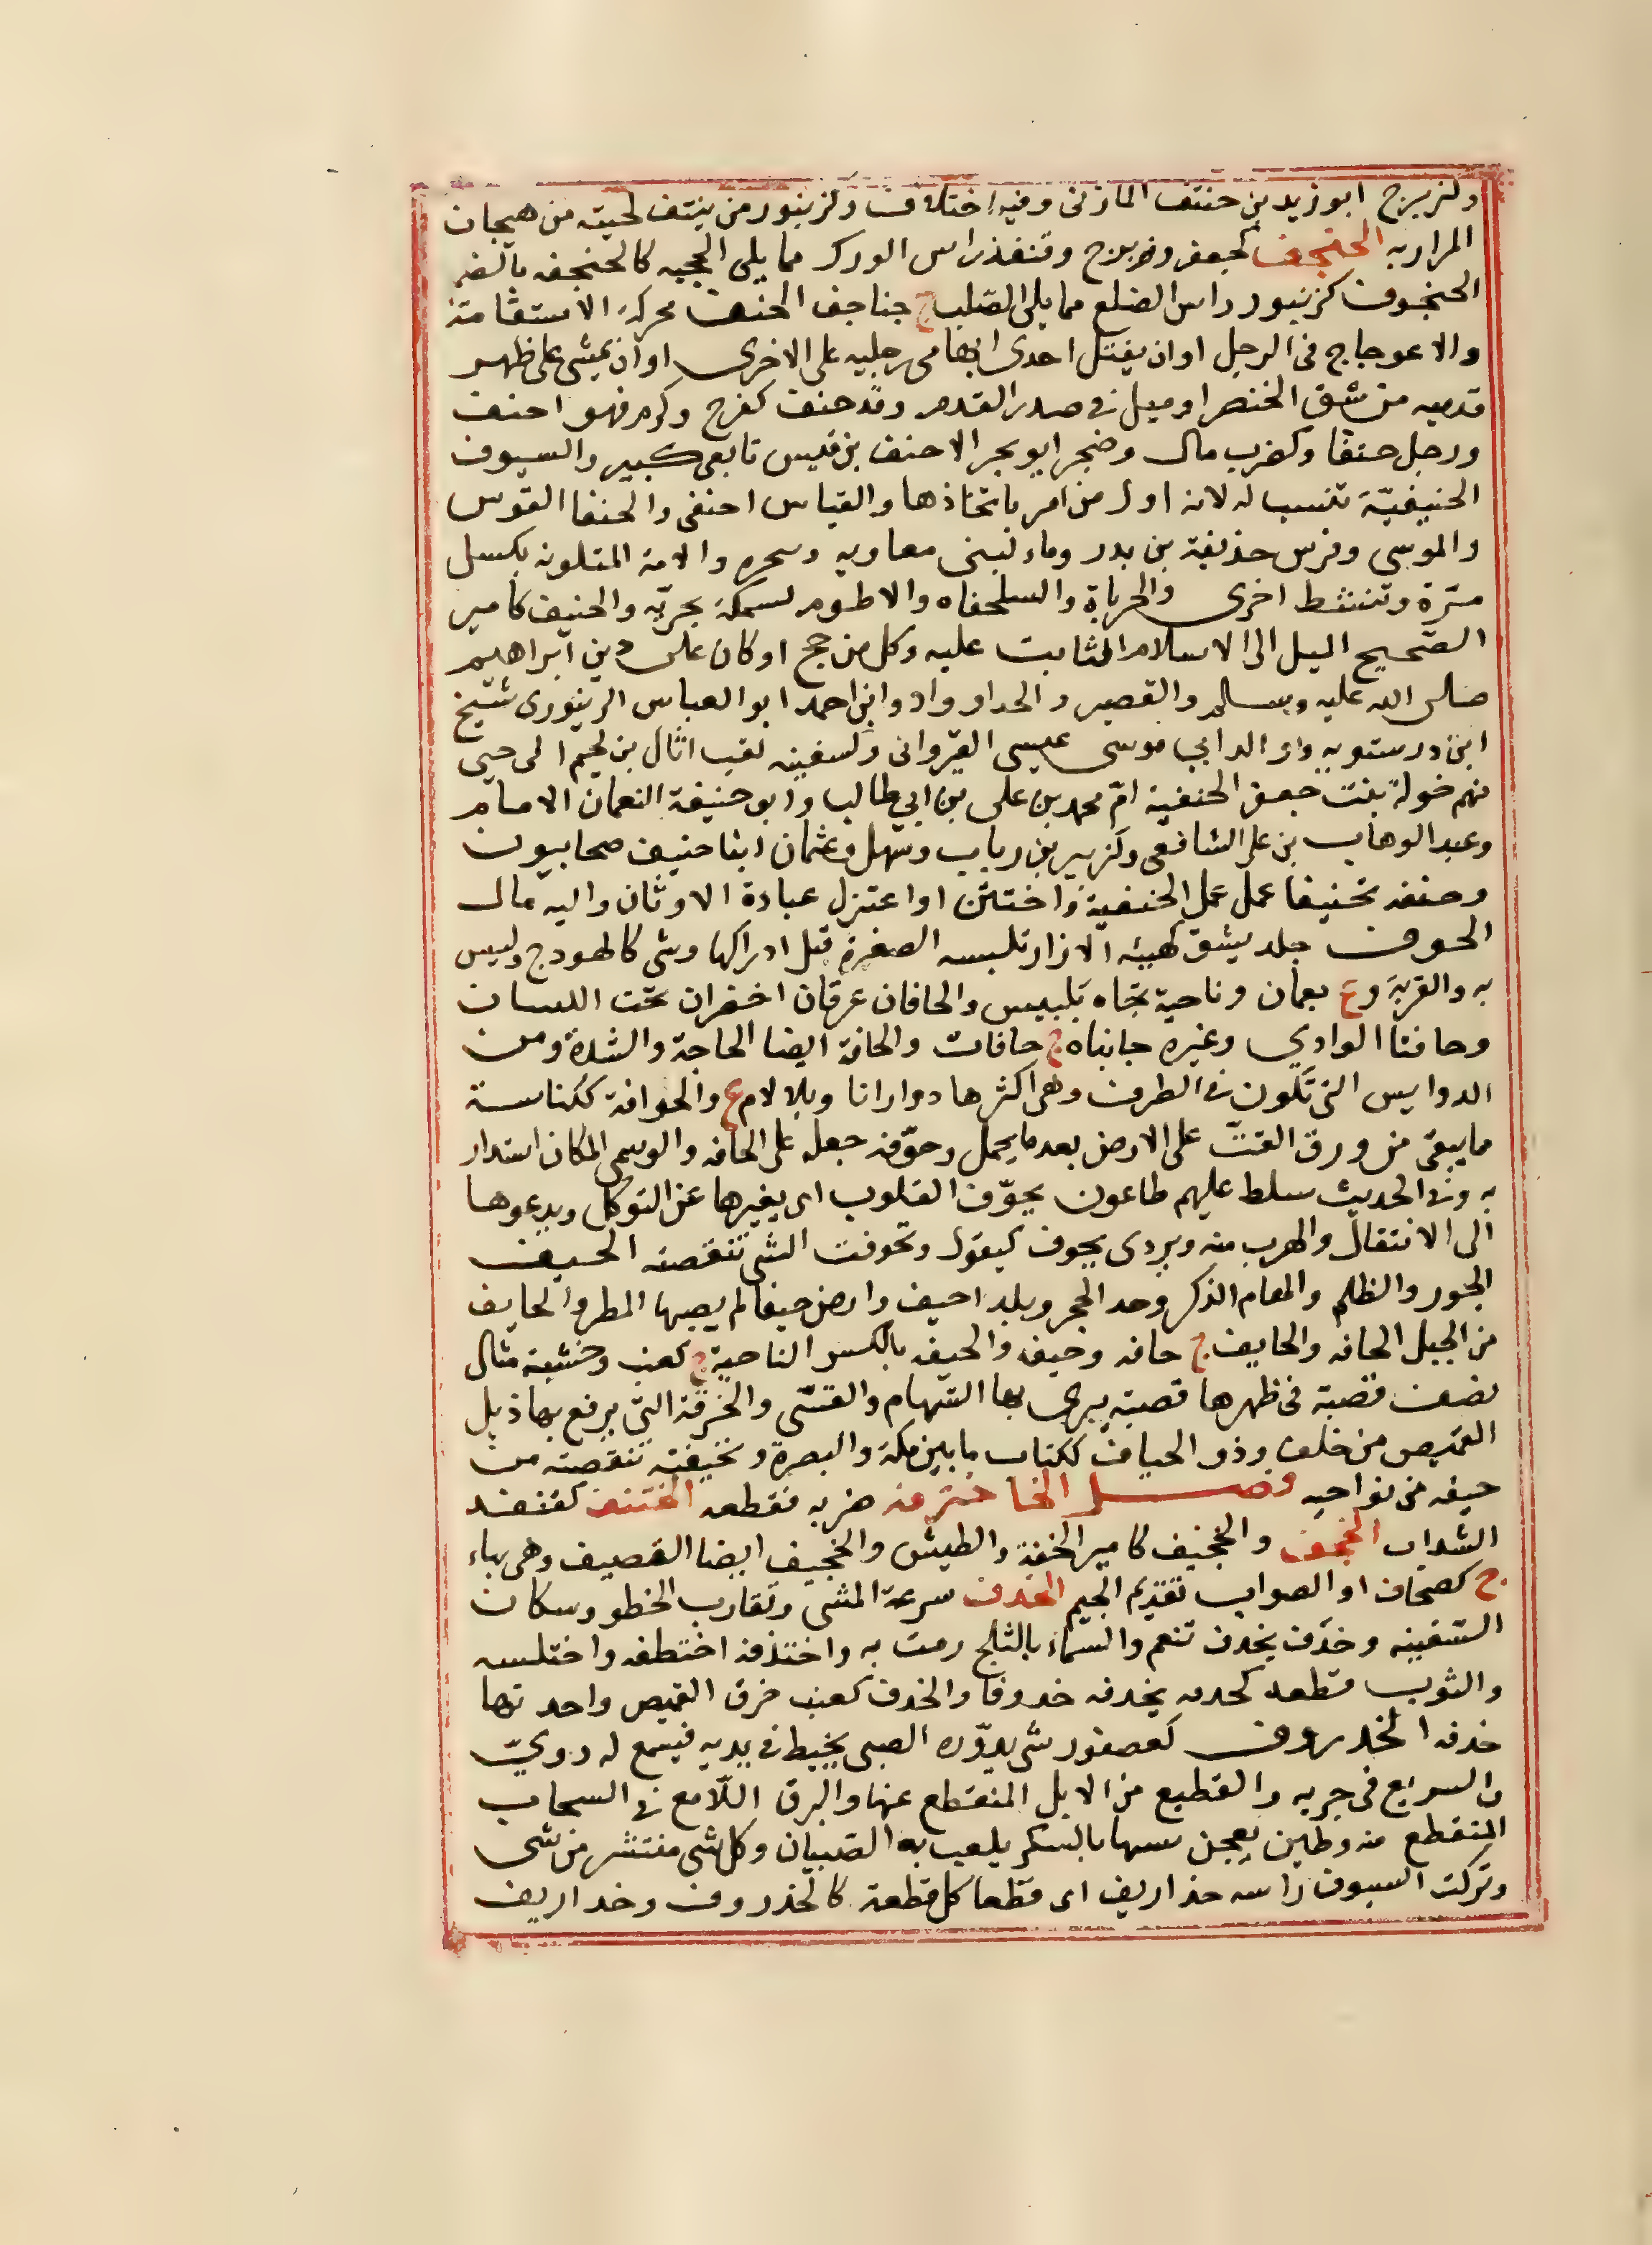 وكزبرج ابو زيد بن حنتف المازنى وفيه اختلاف وكزنبور من ينتف لحيته من هيجان
المرار به الحنجف كجعفر وزبرج وقنفذ راس الورك مما يلى الحجبه كالحنجفه بالضم
الحنجوف كزنبور راس الضلع مما يلى الصّلب ج حناجف الحنف محركة الاستقامة
والاعوجاج فى الرجل او ان يقبل احدى ابهامى رجليه على الاخرى او ان يمشى على ظهر
قدميه من شق الخنصر او ميل فى صدر القدم وقد حنف كفرح وكرم فهو احنف
ورجل حنفا وكضرب مال وضجر ابو بحر الاحنف بن قيس تابعى كبير والسيوف
الحنيفيّة تنسب له لانه اول من امر باتخاذها والقياس احنفى والحنفا القوس
والموسى وفرس حذيفة بن بدر وماء لبنى معاويه وشجره والامة المتلونه بكسل
مرّة وتنشط اخرى والحرباة والسلحفاه والاطوم لسمكة بحريّه والحنيف كامير
الصّحيح الميل الى الاسلام الثابت عليه وكل من حج او كان على دين ابراهيم
صلى الله عليه وسلم والقصير والحذاء وواد وابن احمد ابو العباس الدينورى شيخ
ابن درستويه ووالد ابي موسى عيسى القيروانى وكسفينه لقب اثال بن لجيم ابى حيى
منهم خولة بنت جعفر الحنفية امّ محمد بن على بن ابي طالب وابو حنيفة النعمان الامام
وعبد الوهاب بن على الشافعى وكزبير بن رباب وسهل وعثمان ابنا حنيف صحابيون
وحنفه تحنيفا عمل عمل الحنفية واختتن او اعتزل عبادة الاوثان واليه مال
الحوف جلد يشقّ كهيئه الازار تلبسه الصغيرة قبل ادراكها وشى كالهودج وليس
به والقرية وع بعمان وناحية تجاه بلبيس والحافان عرقان اخضران تحت اللسان
وحافتا الوادي وغيره جانباه ج حافات والحافة ايضا الحاجة والشدة ومن
الدوايس التى تكون فى الطرف وهى اكثرها دوارانا وبلا لام ع والحوافة ككناسة
ما يبقى من ورق القتّ على الارض بعد ما يحمل وحوّفه جعله على الحافه والوسمى المكان استدار
به وفى الحديث سلط عليهم طاعون يحوّف القلوب اى يغيرها عن التوكل ويدعوها
الى الانتقال والهرب منه ويروى يحوف كيقول وتحوفت الشى تنقصته الحيف
الجور والظلم والهام الذكر وحد الحجر وبلد احيف وارض حيفا لم يصبها المطر والحايف
من الجبل الحافه والحايف ج حافه وحيفه والحيفه بالكسر الناحية ج كعنب وخشبة مثال
نصف قصبة فى ظهرها قصبة يبرى بها السّهام والقسّى والخرقة التى يرفع بها ذيل
القميص من خلف وذو الحياف ككتاب ما بين مكة والبصرة وتحيفته تنقصته من
حيفه من نواحيه فصل الخا خترفه ضربه فقطعه الختنف كقنفد
السّداب الخجف والخجيف كامير الخفة والطيش والخجيف ايضا القصيف وهى بهاء
ج كصحاف او الصواب تقديم الجيم الخدف سرعة المشى وتقارب الخطو وسكان
السّفينه وخدف يخدف تنعم والسماء بالثلج رمت به واختدفه اختطفه واختلسه
والثوب قطعه كخدفه يخدفه خدوفا والخدف كعنب خرق القميص واحدتها
خدفه الخدروف كعصفور شى يدوّره الصبى بخيط فى يديه فيسمع له دويّ
والسريع فى جريه والقطيع من الابل المنقطع عنها والبرق اللّامع فى السحاب
المنقطع منه وطين يعجن شبيها بالسكر يلعب به الصّبيان وكل شى منتشر من شى
وتركت السيوف راسه خذاريف اى قطعا كل قطعة كالخذروف وخداريف